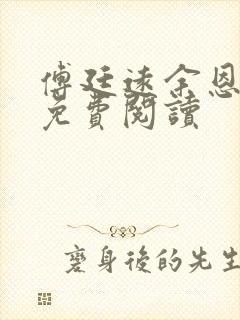 傅廷遠余恩
免費閱讀
變身後的先生